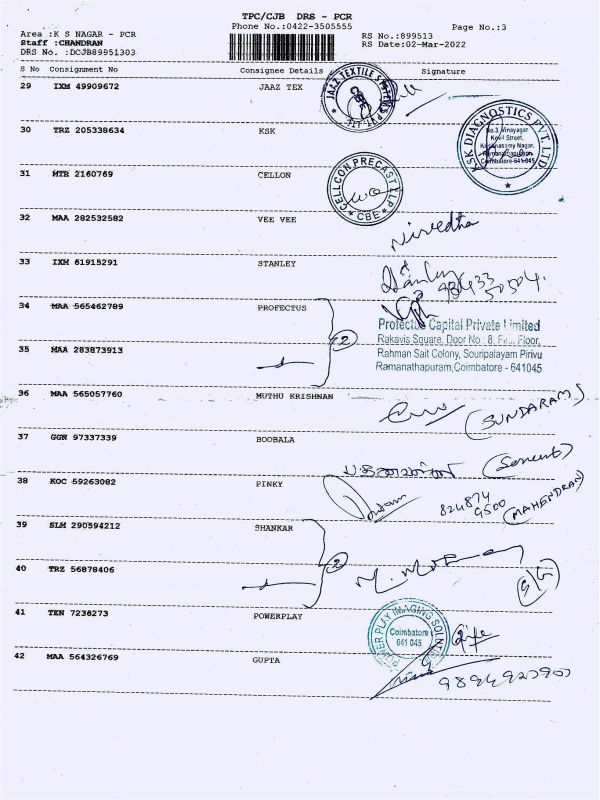 TPC/CJB DRS - PCR
Phone No.:0422-3505555
Page No.:3
Area :K S NAGAR - PCR
Staff :CHANDRAN
DRS No. :DCJB89951303
RS No.:899513
RS Date:02-Mar-2022
S No Consignment No Consignee Details Signature
29 IXM 49909672 JAAZ TEX
JAAZ TEXTILE SYSTEMS
CBE
30 TRZ 205338634 KSK
KSK DIAGNOSTICS PVT. LTD
No.3, Vinayagar
Kovil Street,
Krishnasamy Nagar,
Ramanathapuram,
Coimbatore-641 045
31 MTR 2160769 CELLON
CELLCON PRECAST LLP
* CBE *
32 MAA 282532582 VEE VEE
Nivedha
33 IXM 61915291 STANLEY
Stanley
34 MAA 565462789 PROFECTUS
2
Profectus Capital Private Limited
Rakavis Square, Door No : 8, Floor,
Rahman Sait Colony, Souripalayam Pirivu
Ramanathapuram,Coimbatore - 641045
35 MAA 283873913
36 MAA 565057760 MUTHU KRISHNAN
(SUNDARAM)
37 GGN 97337339 BOOBALA
38 KOC 59263082 PINKY
824874
9500
(MAHENDRAN)
39 SLM 290394212 SHANKAR
2
40 TRZ 56878406
41 TEN 7236273 POWERPLAY
POWER PLAY IMAGING SOLUTIONS
Coimbatore
641 045
42 MAA 564326769 GUPTA